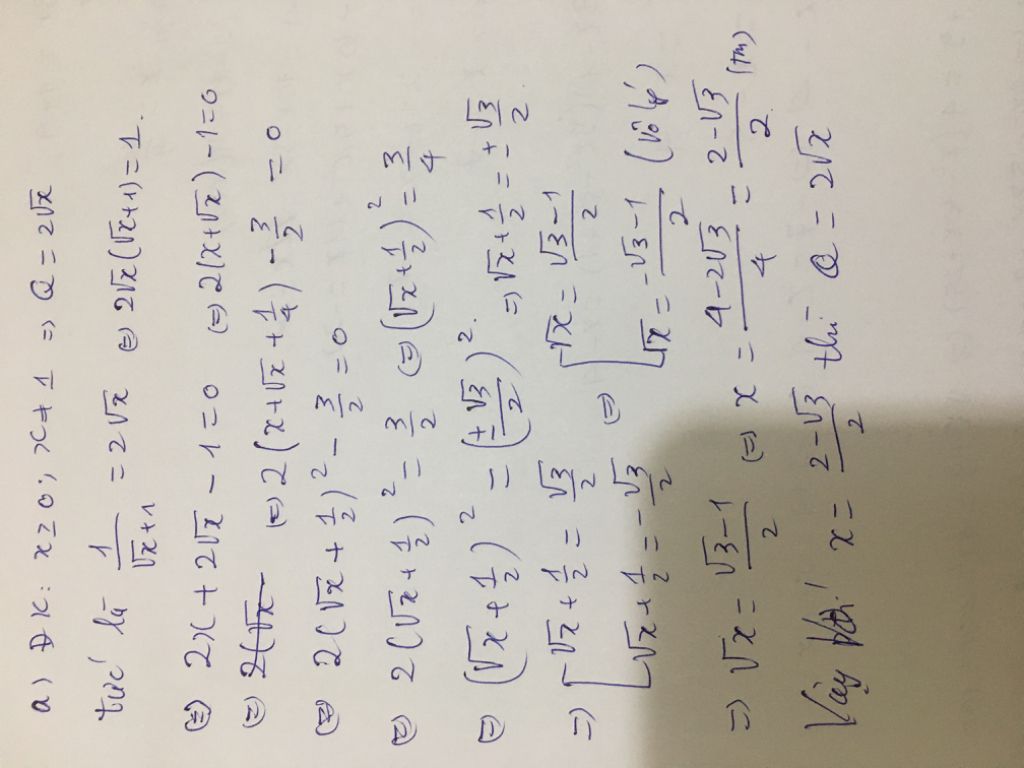 a) ĐK: x ≥ 0; x ≠ 1 => Q = 2√x
tức là 1/(√x+1) = 2√x (=) 2√x(√x+1)=1.
(=) 2x + 2√x - 1 = 0 (=) 2(x+√x) - 1 = 0
(=) 2(√x (=) 2(x+√x+1/4) - 3/2 = 0
(=) 2(√x + 1/2)² - 3/2 = 0
(=) 2(√x + 1/2)² = 3/2 (=) (√x + 1/2)² = 3/4
(=) (√x + 1/2)² = (±√3/2)². => √x + 1/2 = ±√3/2
=> [ √x + 1/2 = √3/2 (=) [ √x = (√3-1)/2
√x + 1/2 = -√3/2 √x = (-√3-1)/2 (vô lý)
=> √x = (√3-1)/2 (=) x = (4-2√3)/4 = (2-√3)/2 (TM)
Vậy Với x = (2-√3)/2 thì Q = 2√x